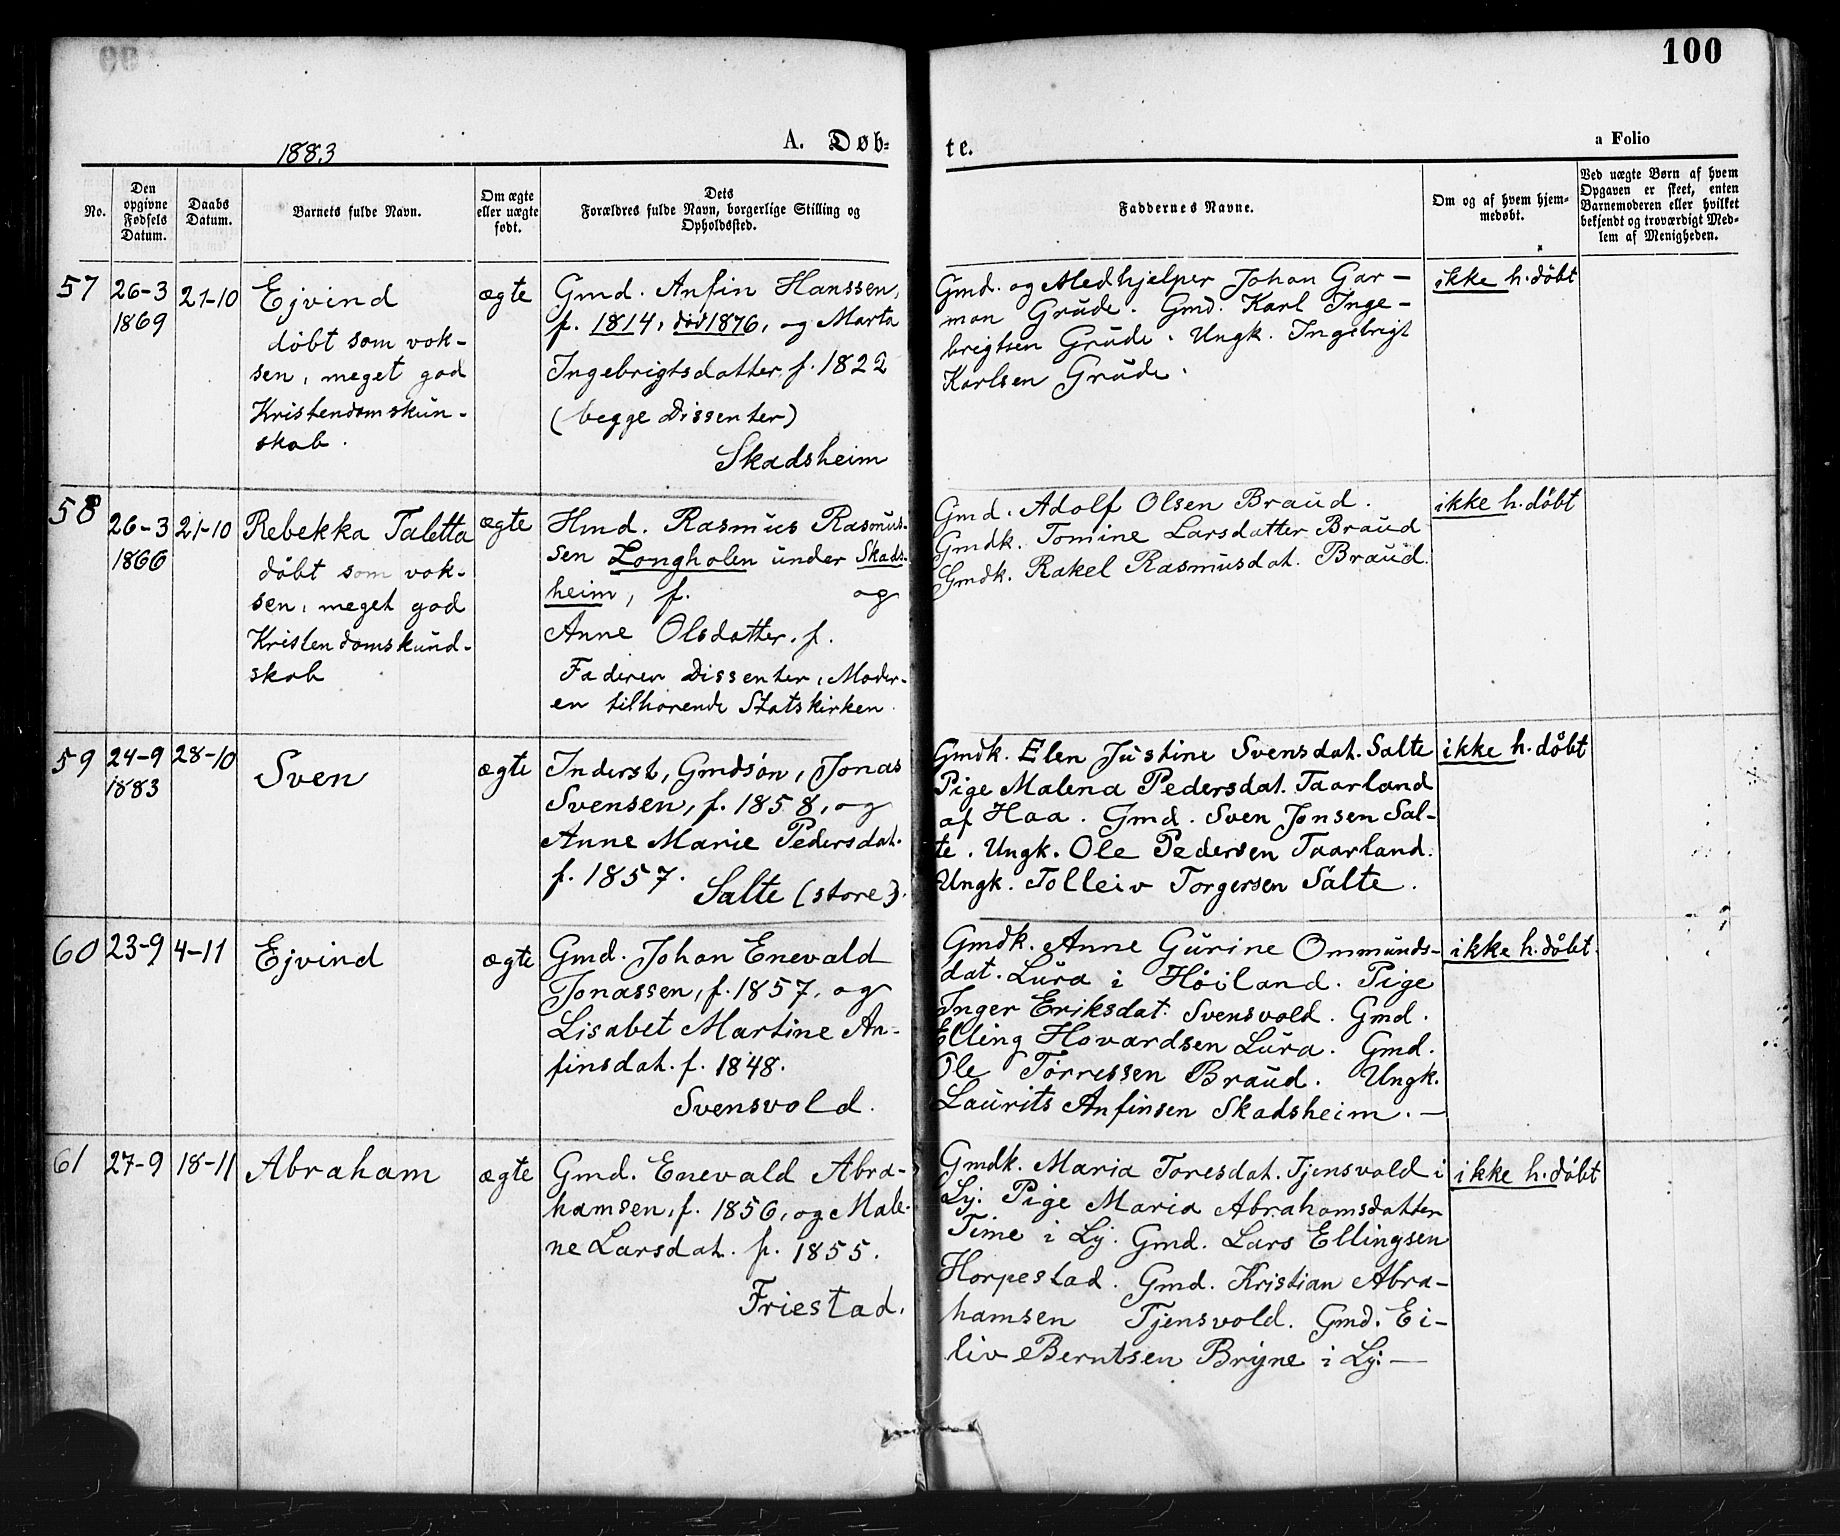 100
1883
A. Døb=
te.
a Folio
No.
Den
opgivne
Fødsels
Datum.
Daabs
Datum.
Barnets fulde Navn.
Om ægte
eller uægte
født.
Dets
Forældres fulde Navn, borgerlige Stilling og
Opholdssted.
Faddernes Navne.
Om og af hvem hjem-
medøbt.
Ved uægte Børn af hvem
Opgaven er skeet, enten
Barnemoderen eller hvilket
bekjendt og troværdigt Med-
lem af Menigheden.
57
26-3
1869
21-10
Ejvind
döbt som vok-
sen, meget god
Kristendomskun-
skab.
ægte
Gmd. Anfin Hanssen,
f. 1814, död 1876, og Marta
Ingebrigtsdatter, f. 1822
(begge Dissenter)
Skadsheim
Gmd. og Medhjelper Johan Gar-
man Grude. Gmd. Karl Inge-
brigtsen Grude. Ungk. Ingebrigt
Karlsen Grude.
ikke h. döbt
58
26-3
1866
21-10
Rebekka Taletta
döbt som vok-
sen, meget god
Kristendomskund-
skab
ægte
Hmd. Rasmus Rasmus-
sen Longholen under Skads-
heim, f. og
Anne Olsdatter, f.
Faderen Dissenter, Moder-
en tilhorende Statskirken.
Gmd. Adolf Olsen Braud.
Gmdk. Tomine Larsdatter Braud
Gmdk. Rakel Rasmusdat. Braud.
ikke h. döbt
59
24-9
1883
28-10
Sven
ægte
Inderst, Gmdsön, Jonas
Svensen, f. 1858, og
Anne Marie Pedersdat.
f. 1857.
Salte (store).
Gmdk. Elen Justine Svensdat. Salte
Pige Malena Pedersdat. Taarland
af Haa. Gmd. Sven Jonsen Sal-
te. Ungk. Ole Pedersen Taarland.
Ungk. Tolleiv Torgersen Salte.
ikke h. döbt
60
23-9
4-11
Ejvind
ægte
Gmd. Johan Enevald
Jonassen, f. 1857, og
Lisabet Martine An-
finsdat. f. 1848.
Svensvold.
Gmdk. Anne Gurine Ommunds-
dat. Lura i Höiland. Pige
Inger Eriksdat. Svensvold. Gmd.
Elling Hovardsen Lura. Gmd.
Ole Törressen Braud. Ungk.
Laurits Anfinsen Skadsheim. —
ikke h. döbt.
61
27-9
18-11
Abraham
ægte
Gmd. Enevald Abra-
hamsen, f. 1856, og Male-
ne Larsdat. f. 1855.
Friestad.
Gmdk. Maria Toresdat. Tjensvold i
Ly. Pige Maria Abrahamsdatter
Time i Ly. Gmd. Lars Ellingsen
Horpestad. Gmd. Kristian Abra-
hamsen Tjensvold. Gmd. Ei-
liv Berntsen Bryne i Ly. —
ikke h. döbt